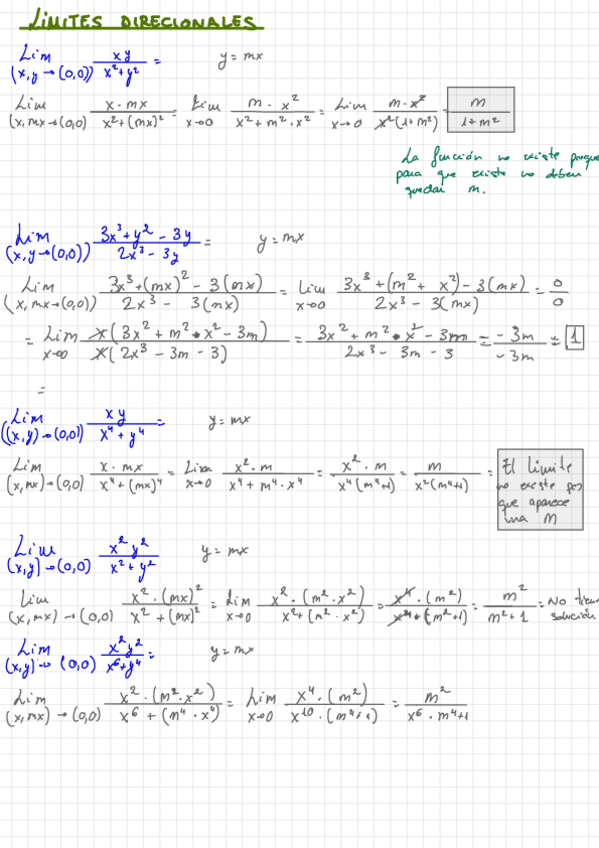 LÍMITES DIRECIONALES
Lim (x,y→(0,0)) xy / x²+y² = y = mx
Lim (x,mx→(0,0) x·mx / x²+(mx)² = Lim x→0 m·x² / x²+m²·x² = Lim x→0 m·x² / x²(1+m²) = m / 1+m²
La función no existe porque
para que exista no deben
quedar m.
Lim (x,y→(0,0)) 3x³+y²-3y / 2x³-3y = y = mx
Lim (x,mx→(0,0)) 3x³+(mx)²-3(mx) / 2x³-3(mx) = Lim x→0 3x³+(m²+x²)-3(mx) / 2x³-3(mx) = 0/0
= Lim x→0 x(3x²+m²·x²-3m) / x(2x³-3m-3) = 3x²+m²·x²-3m / 2x³-3m-3 = -3m / -3m = 1
=
Lim ((x,y)→(0,0)) xy / x⁴+y⁴ = y = mx
Lim (x,mx)→(0,0) x·mx / x⁴+(mx)⁴ = Lim x→0 x²·m / x⁴+m⁴·x⁴ = x²·m / x⁴(m⁴+1) = m / x²(m⁴+1) = El límite
no existe por
que aparece
una M
Lim (x,y)→(0,0) x²y² / x²+y² y = mx
Lim (x,mx)→(0,0) x²·(mx)² / x²+(mx)² = Lim x→0 x²·(m²·x²) / x²+(m²·x²) = x⁴·(m²) / x⁴+(m²+1) = m² / m²+1 = No tiene
solución
Lim (x,y)→(0,0) x²y² / x⁶+y⁴ = y = mx
Lim (x,mx)→(0,0) x²·(m²·x²) / x⁶+(m⁴·x⁴) = Lim x→0 x⁴·(m²) / x¹⁰·(m⁴+1) = m² / x⁶·m⁴+1